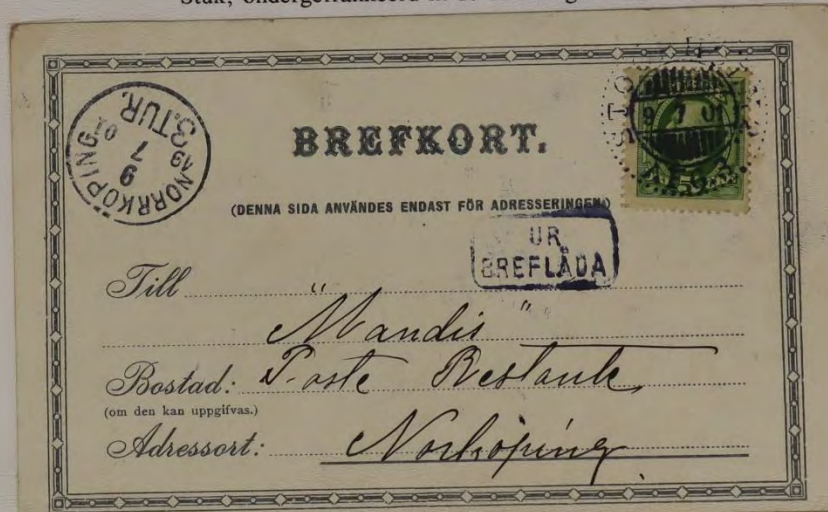 NORRKÖPING
9
7
01
3.TUR.
9 7 01
BREFKORT.
(DENNA SIDA ANVÄNDES ENDAST FÖR ADRESSERINGEN.)
UR
BREFLÅDA
Till
"Mandis"
Bostad: Poste Restante
(om den kan uppgifvas.)
Adressort: Norköping